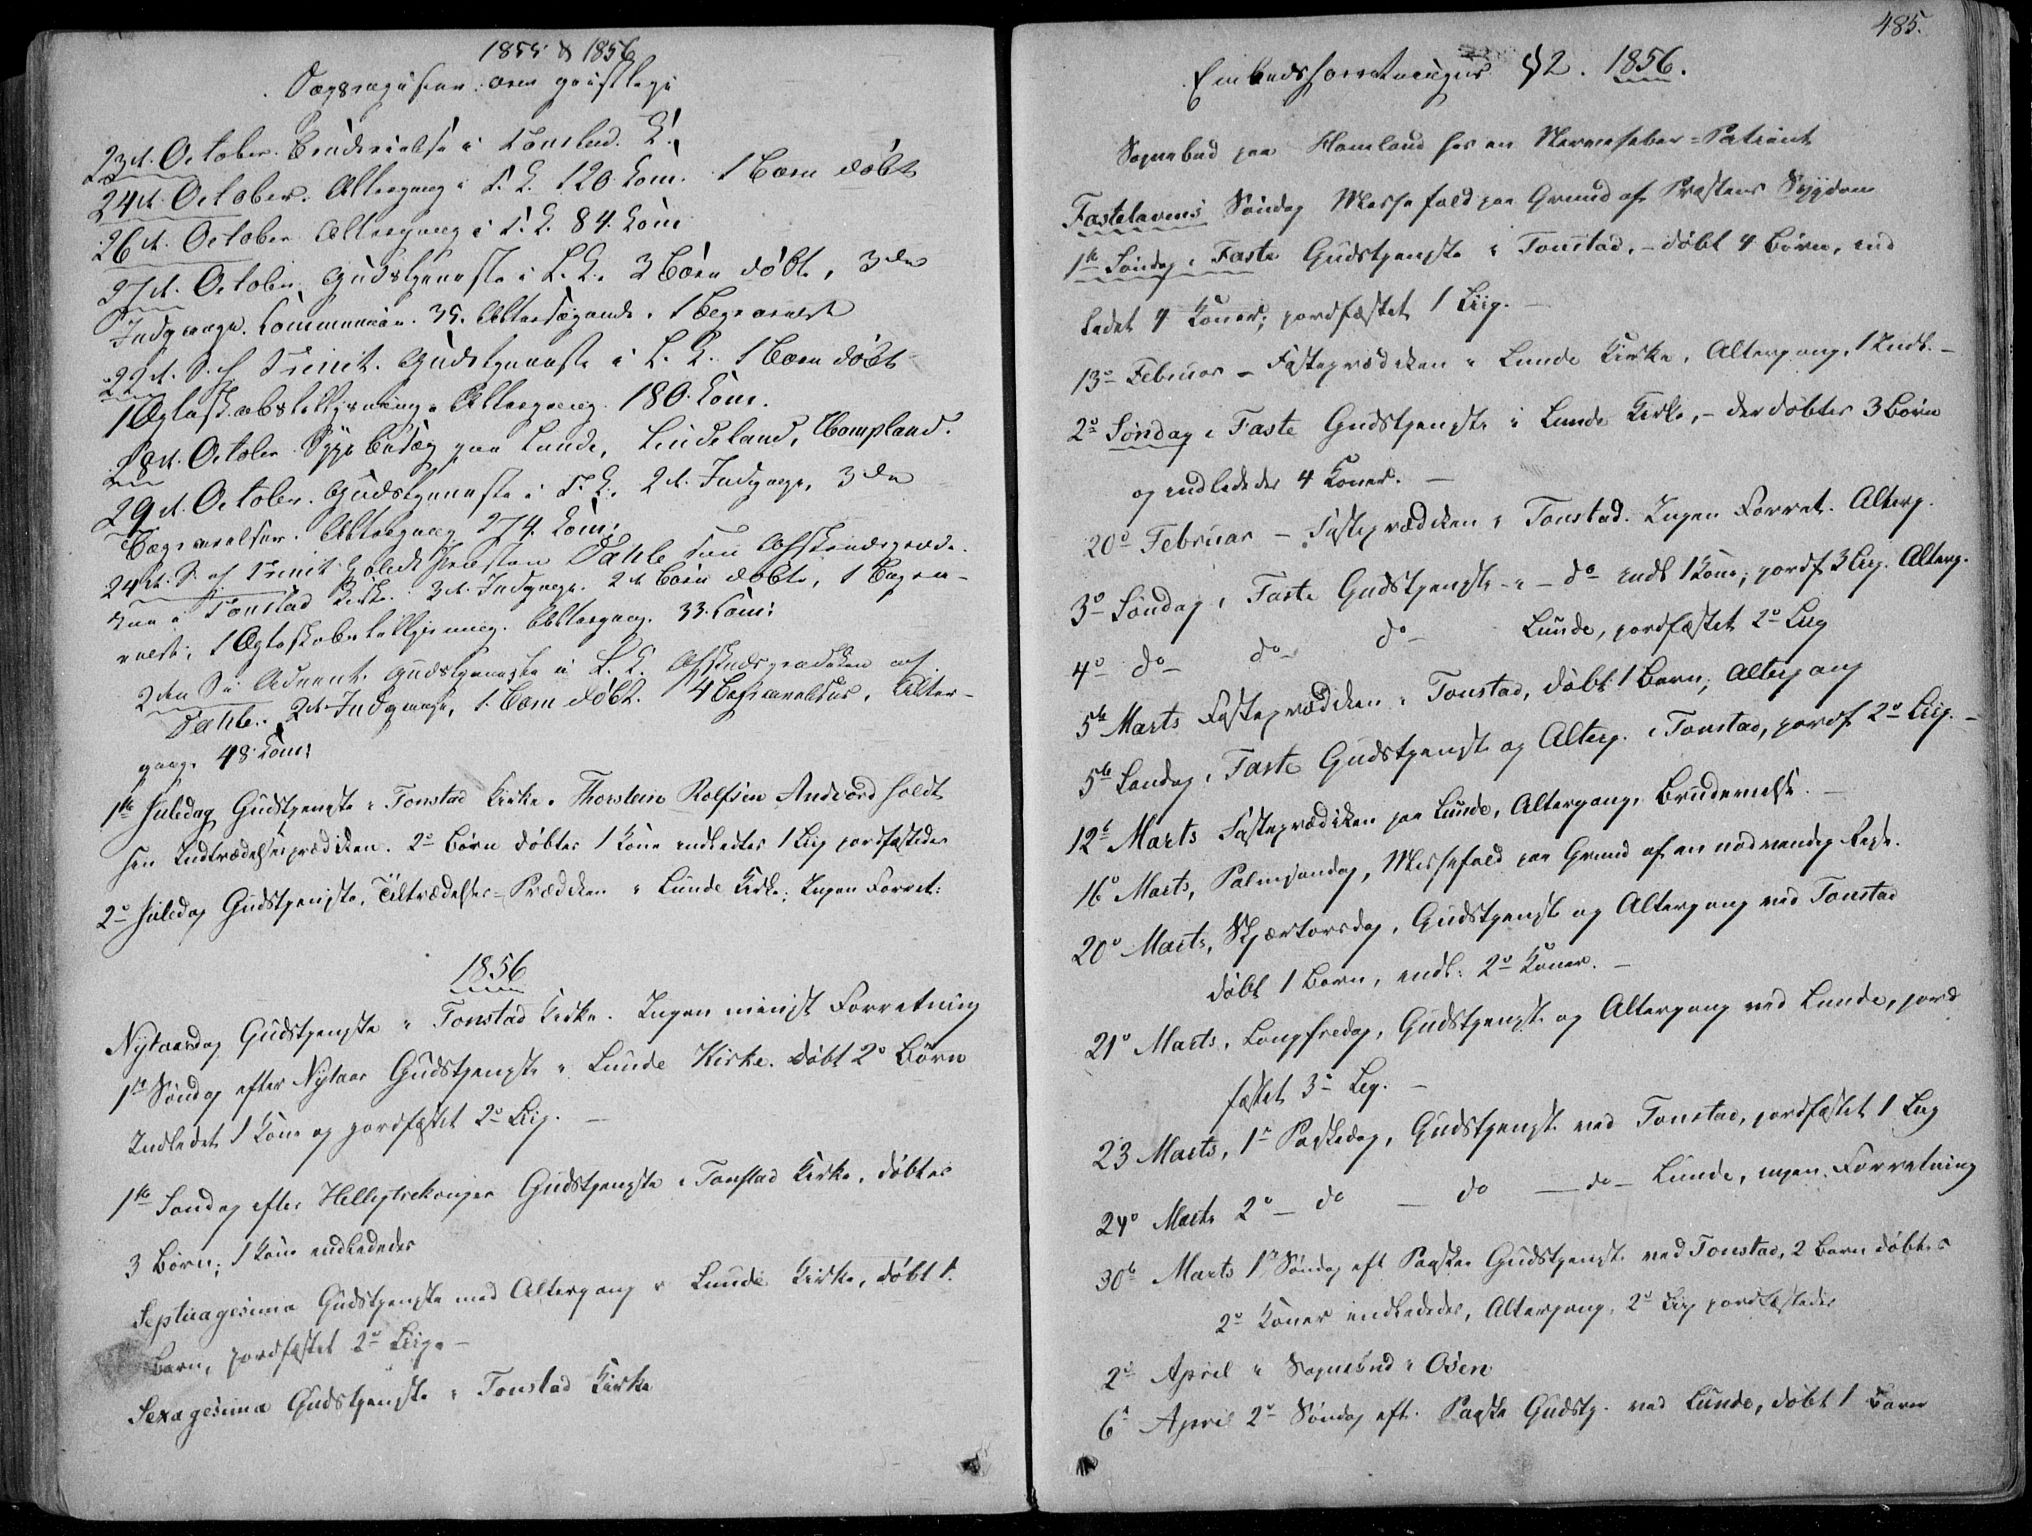 1855 & 1856
Dagsregister over geistlige
23d. October. Brudevielse i Tonstad K.
24d. October. Altergang i T. K. 120 Com. 1 Barn døbt
26d. October Altergang i T. K. 84. Com
27d. October. Gudstjeneste i L. K. 3 Børn døbte, 3de
Indgange. Communion. 35. Altersøgende. 1 Begravelse
22d. S. ef Trinit. Gudstjeneste i L. K. 1 Barn døbt
1 Ægteskabstillysning. Altergang. 180. Com.
28d. October Sygebesøg paa Lunde, Lindeland,
29d. October. Gudstjeneste i T. K. 2d. Indgange, 3de
Begravelser. Altergang 274. Com:
24d. S. ef Trinit. holdt Præsten Dahle sin Afskedspræde-
ken i Tonstad Kirke. 3d. Indgange. 2d Børn døbte, 1 Begra-
velse, 1 Ægteskabstillysning. Altergang. 33. Com:
2den S. i Advent. Gudstjeneste i L. K. Afskedsprædiken af
Dahle. 2d. Indgange, 1. Barn døbt. 4 Begravelser. Alter-
gang. 48. Com:
1ste Juledag Gudstjeneste i Tonstad Kirke. Thorstein Rolfsen Andvord holdt
sin Indtrædelsesprædiken. 2o Børn døbtes 1 Kone indledtes 1 Liig jordfæstedes
2o Juledag Gudstjeneste, Tiltrædelses-Prædiken i Lunde Kirke; Ingen Forret:
1856
Nytaarsdag Gudstjeneste i Tonstad Kirke. Ingen minist Forretning
1ste Søndag efter Nytaar Gudstjeneste i Lunde Kirke. døbt 2o Børn
Indledet 1 Kone og jordfæstet 2o Liig. —
1ste Søndag efter Helligtrekonger Gudstjeneste i Tonstad Kirke, døbtes
3 Børn; 1 Kone indledede
Septuagesima Gudstjeneste med Altergang i Lunde Kirke, døbt 1.
Barn, jordfæstet 2o Liig. —
Sexagesima Gudstjeneste i Tonstad Kirke
485.
Embedsforretninger §2. 1856.
Sognebud paa Homland hos en Nervefeber-Patient
Fastelavens Søndag Messefald paa Grund af Præstens Sygdom
1ste Søndag i Faste Gudstjeneste i Tonstad, - døbt 4 Børn, ind
ledet 4 Koner; jordfæstet 1 Liig. —
13o Februar - Fasteprædiken i Lunde Kirke, Altergang, 1 Indl. -
2o Søndag i Faste Gudstjeneste i Lunde Kirke, - der døbtes 3 Børn
og indlededes 4 Koner. —
20o Februar - Fasteprædiken i Tonstad. Ingen Forret. Alterg.
3o Søndag i Faste Gudstjeneste - i - do indl 1 Kone; jordf 3 Liig. Alterg.
4o do - do - do - Lunde, jordfæstet 2o Liig
5te Marts Fasteprædiken i Tonstad, døbt 1 Barn; Altergang
5te Søndag i Faste Gudstjeneste og Alterg. i Tonstad, jordf 2o Liig. -
12te Marts Fasteprædiken paa Lunde, Altergang, Brudevielse. —
16o Marts, Palmesøndag, Messefald paa Grund af en nødvendig Reise.
20o Marts, Skjærtorsdag, Gudstjeneste og Altergang ved Tonstad
døbt 1 Barn, indl: 2o Koner. —
21o Marts, Langfredag, Gudstjeneste og Altergang ved Lunde, jord
fæstet 3o Liig. —
23 Marts, 1ste Paaskedag, Gudstjeneste ved Tonstad, jordfæstet 1 Liig
24o Marts 2o - do - do - do - Lunde, ingen Forretning
30te Marts 1ste Søndag eft Paaske Gudstjeneste ved Tonstad, 2 Børn døbtes
2o Koner indlededes, Altergang, 2o Liig jordfæstedes
2o April i Sognebud i Osen
6te April 2o Søndag eft. Paaske Gudstj. ved Lunde, døbt 1 Barn